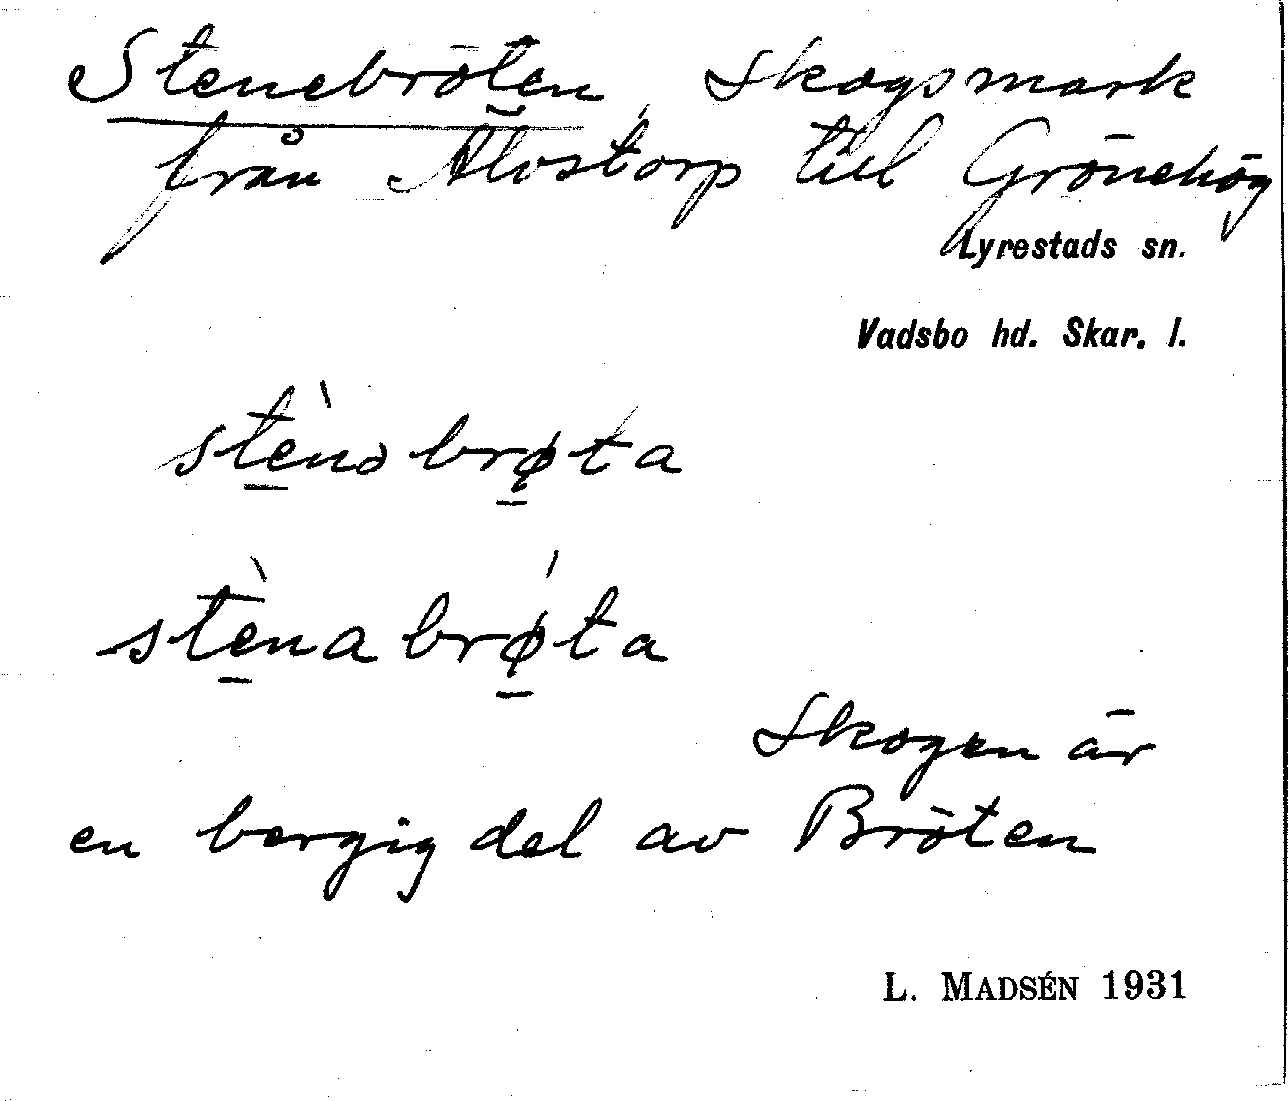 Stenebröten, Skogsmark
från Älvstorp till Grönehög
Lyrestads sn.
Vadsbo hd. Skar. l.
stènəbrø̀ta
stènabrǿta
Skogen är
en bergig del av Bröten
L. MADSÉN 1931